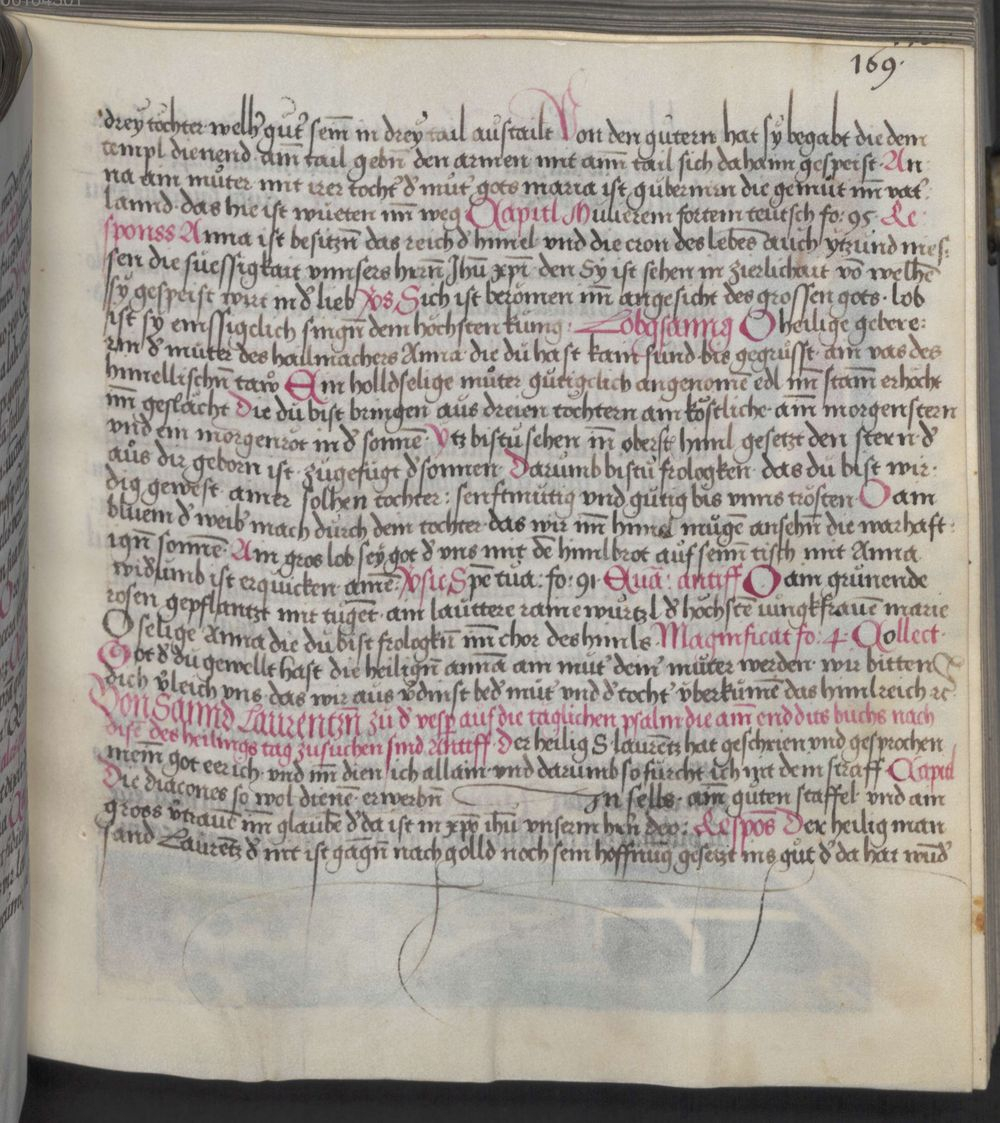 169.
drey töchter welh̄ gut̄ sein̄ in drey tail austailt Von den gutern hat sy begabt die dem
templ dienend ain̄ tail gebn̄ den armen mit aim tail sich dahaim gespeist An
na ain muter mit irer tocht̄ d̄ mut̄ gots maria ist guberniern die gemüt im̄ vat̄
lannd das hie ist wüeten im̄ weg Capitl Mulierem fortem teutsch fo: 95 Re:
sponss Anna ist besitzn̄ das reich d̄ himel vnd die cron des lebēs auch ytzund nies:
sen die suessigkait vnnsers hrrn̄ Jhū xp̄i den Sy ist sehen in zierlichait vō welhē
sy gespeist wirt in d̄ lieb V̄s Sich ist berömen im̄ angesicht des grossen gots lob
ist sy emssigclich singn̄ dem höchsten kunig: Lobgsanng O heilige gebere:
rin d̄ müter des hailmachers Anna die du hast kain sund bis gegrüsst ain vas des
himellischn̄ taw Ein holldselige müter gütigclich angenomē edl im̄ stam̄ erhöcht
im̄ geslächt Die du bist bringen aus dreien töchtern ain köstliche ain̄ morgenstern
vnd ein morgenröt in d̄ sonnē Ytz bistu sehen im̄ oberst himl gesetzt den stern d̄
aus dir geborn ist zugefügt d̄ sonnen Darumb bistu frologken das du bist wir:
dig gewest ainer solhen tochter: senftmütig vnd gütig bis vnns trösten O ain
bluem d̄ weib̄ mach durch dein tochter das wir im̄ himel mügē ansehn̄ die warhaft:
ign̄ sonnē Ain gros lob sey got d̄ vns mit dē himlbrot auf sein̄ tisch mit Anna
widumb ist erquicken amē V̄sic Spē tua: fo: 91 Euā: antiff O ain grünende
rosen gepflantzt mit tugēt ain lauttere rame würtzl d̄ höchstē iungkfrauē marie
O selige Anna die du bist frologkn̄ im̄ chor des himls Magnificat fo: 4 Collect
Got d̄ du gewellt hast die heilign̄ annā ain mut̄ dein̄ müter werden wir bitten
dich v̄leich vns das wir aus v̄dinst bed̄ müt̄ vnd d̄ tocht̄ v̄berkumē das himlreich ꝛc
Von Sannd Laurentzn̄ zu d̄ vesp̄ auf die täglichen psalm die am̄ end dits buchs nach
disē des heilings tag zusuchen sind Antiff Der heilig S laurētz hat geschrien vnd gesprochen
mein̄ got eer ich vnd im̄ dien ich allain vnd darumb so fürcht ich nit dein straff Capitl
Die diacones so wol dienē erwerbn̄ In selbs ain̄ guten staffel vnd ain
gross v̄trauē im̄ glaubē d̄ da ist in xp̄o ihū vnserm hrn̄ deo: Respōs Der heilig man
sand Laurētz d̄ nit ist gāgn̄ nach golld noch sein hoffnūg gesetzt ins gut d̄ da hat wūd̄